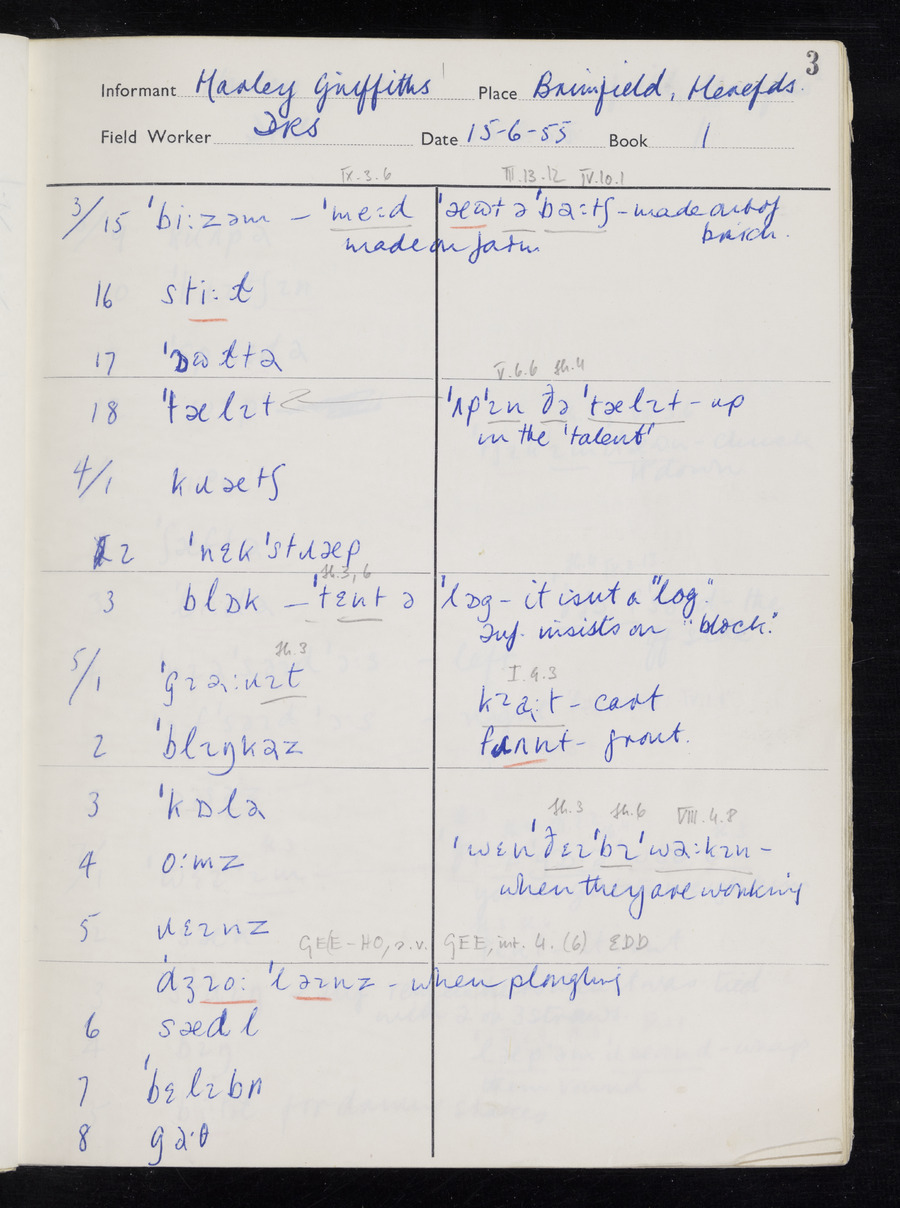 3
Informant Harley Griffiths Place Brimfield, Herefds.
Field Worker DRS Date 15-6-55 Book 1
IX.3.6 III.13.12 IV.10.1
3/15 ˈbiːzəm – ˈmeːd ə
made on farm
– made out of
brich.
16 stiːɫ
17
V.6.6 sh.4
18 ˈtælɪt
ˈʌpˈɪn ðə ˈtælɪt – up
in the 'talent'
4/1 kɹætʃ
2 ˈnɛkˈstɹæp
sh.3, 6
3 blɒk – ˈtɛnt ə ˈlɒg – it isnt a "log".
Inf. insists on "block".
sh.3
5/1
I.9.3
– cart
2 ˈblɪŋkəz
– grout.
3 ˈkɒlə
sh.3 sh.6 VIII.4.8
4 oːmz
ˈwɛnˈðɛɪˈbɪˈwəːkɪn –
when they are working
5 ɹɛɪnz
GEE-HO, s.v. GEE, int. 4. (6) EDD
ˈdʒɪoːˈləɪnz – when ploughing
6 sædl
7 ˈbɛlɪbn
8 gəːθ